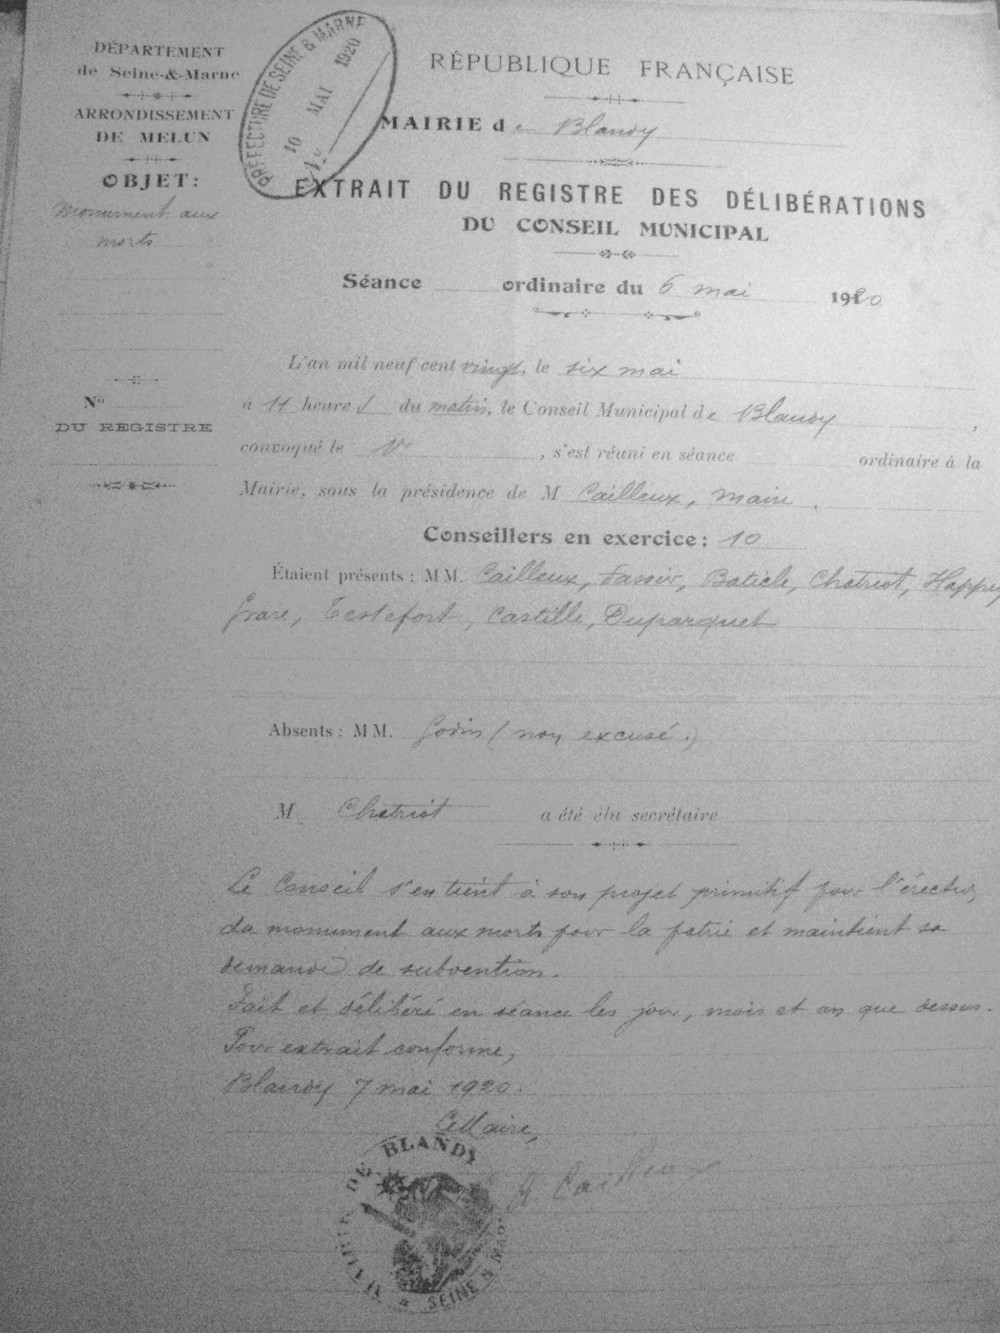 DÉPARTEMENT
de Seine-&-Marne
ARRONDISSEMENT
DE MELUN
OBJET:
Monument aux
morts
No
DU REGISTRE
PRÉFECTURE DE SEINE & MARNE
10 MAI 1920
RÉPUBLIQUE FRANÇAISE
MAIRIE de Blandy
EXTRAIT DU REGISTRE DES DÉLIBÉRATIONS
DU CONSEIL MUNICIPAL
Séance ordinaire du 6 mai 1920
L'an mil neuf cent vingt, le six mai
a 11 heures du matin, le Conseil Municipal de Blandy,
convoqué le , s'est réuni en séance ordinaire à la
Mairie, sous la présidence de M Cailleux, maire.
Conseillers en exercice: 10
Étaient présents: MM. Cailleux, Baticle, Chatriot,
Grare, Testefort, Castille, Duparquet
Absents: MM. Godin (non excusé.)
M Chatriot a été élu secrétaire
Le Conseil s'en tient à son projet primitif pour l'érection
du monument aux morts pour la patrie et maintient sa
demande de subvention.
Fait et délibéré en séance les jour, mois et an que dessus.
Pour extrait conforme,
Blandy 7 mai 1920.
Le Maire,
Cailleux
MAIRIE DE BLANDY
SEINE & MARNE